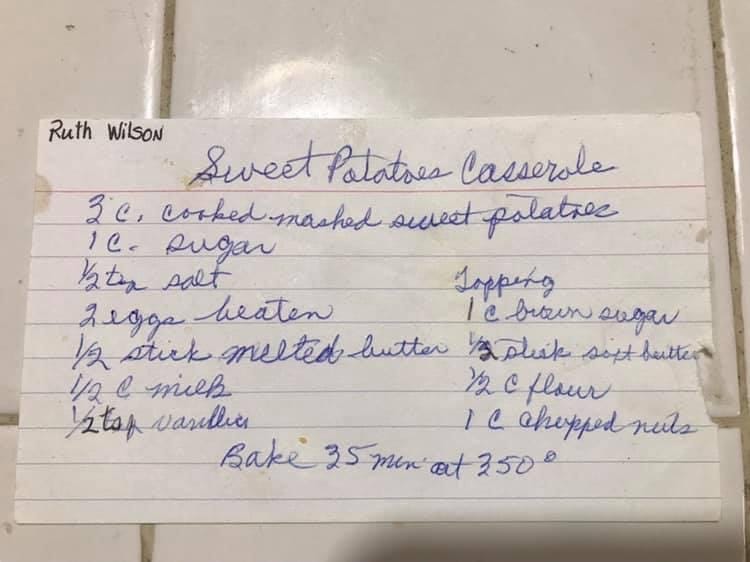 Ruth Wilson
Sweet Potatoes Casserole
3 c. cooked mashed sweet potatoes
1 c. sugar
1/2 tsp salt
2 eggs beaten
1/2 stick melted butter
1/2 c milk
1/2 tsp vanilla
Topping
1 c brown sugar
1/2 stick soft butter
1/2 c flour
1 c chopped nuts
Bake 35 min at 350°